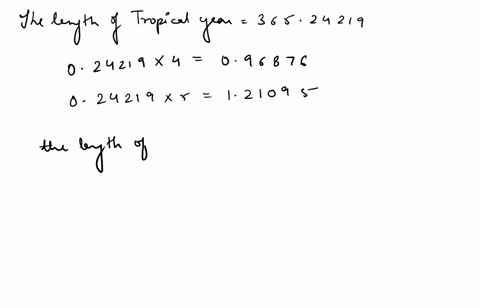 The length of Tropical year = 365.24219
0.24219 × 4 = 0.96876
0.24219 × 5 = 1.21095
the length of